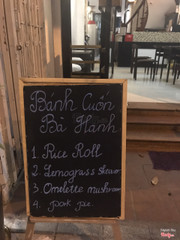 Bánh Cuốn
Bà Hanh
1. Rice Roll
2. Lemograss
3. Omelette mushroom
4. pork pie